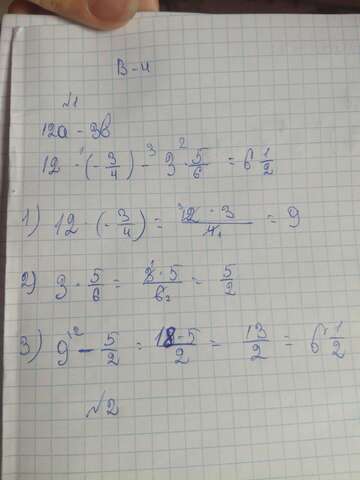 В-4
№1
12a - 3b
12 · (-3/4) - 3 · 5/6 = 6 1/2
1) 12 · (-3/4) = 12 · 3 / 4 = 9
2) 3 · 5/6 = 3 · 5 / 6 = 5/2
3) 9 - 5/2 = 18-5/2 = 13/2 = 6 1/2
№2